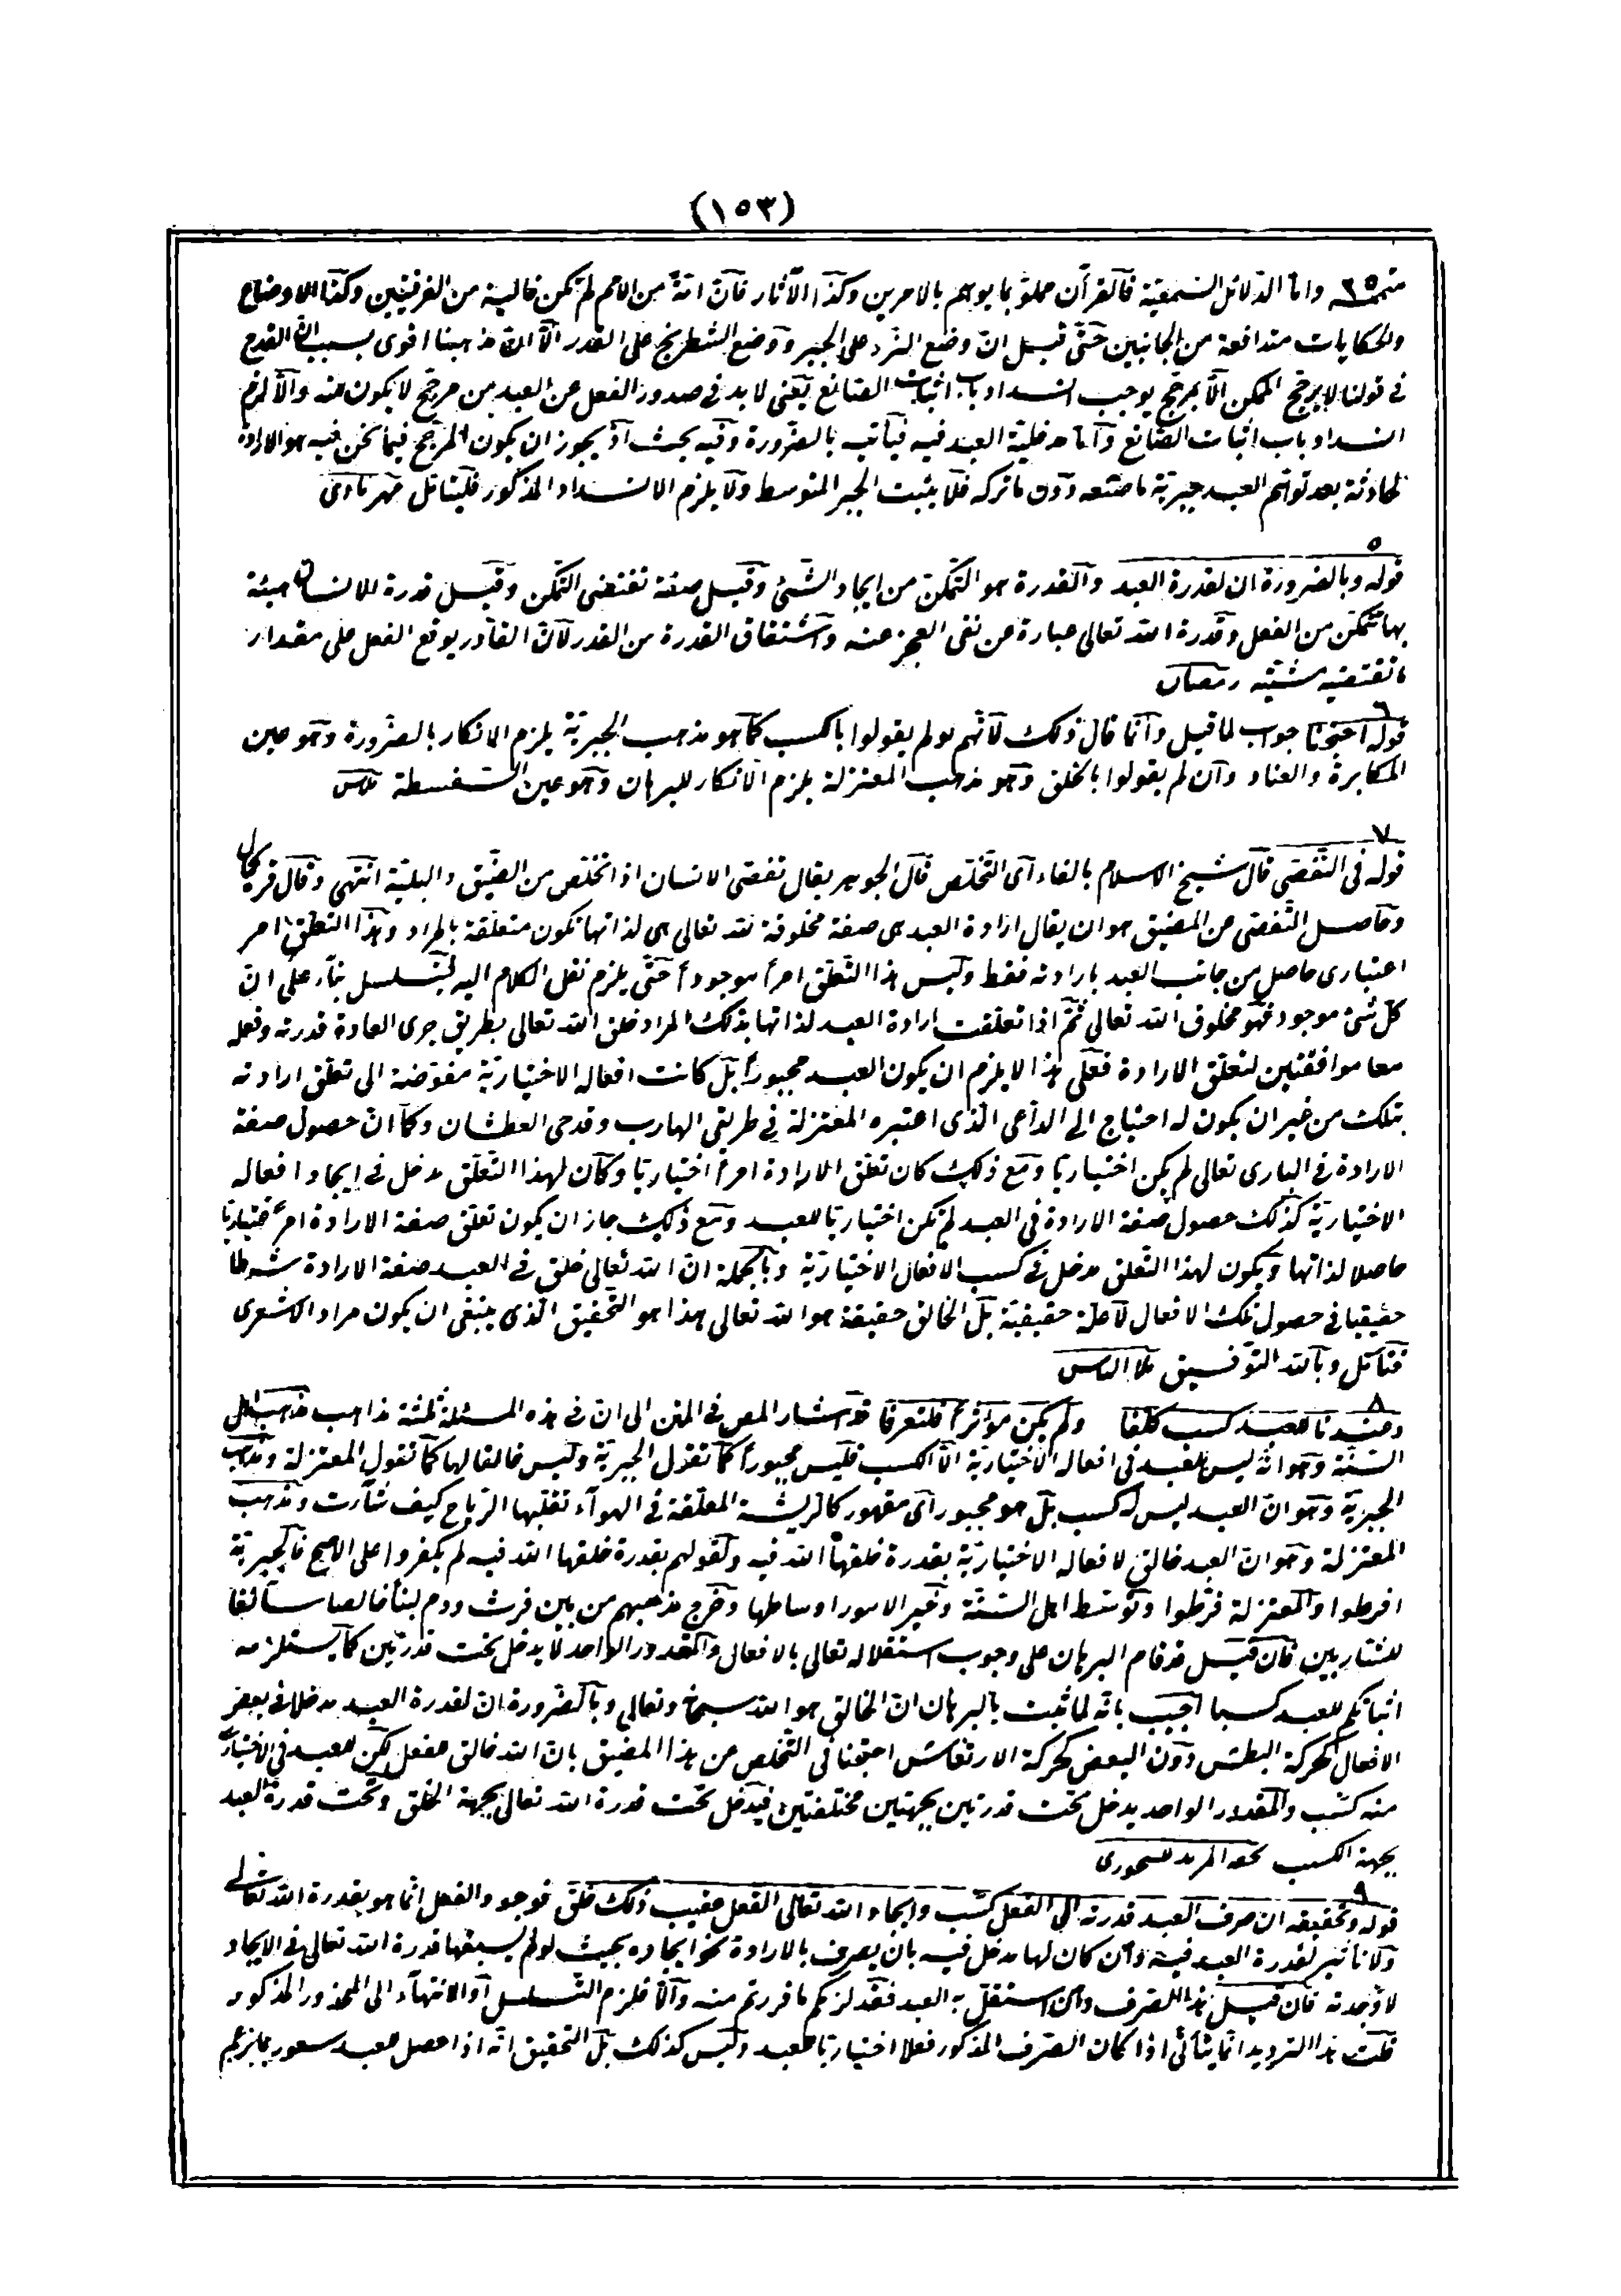 (١٥٣)
واما الدلائل السمعية فالقرآن مملو بما يوهم بالامرين وكذا الآثار فان امة من الامم لم تكن خالية من الفرقتين وكذا الاوضاع
والحكايات متدافعة من الجانبين حتى قيل ان وضع النرد على الجبر ووضع الشطرنج على القدر الا ان مذهبنا اقوى بسبب ان القدح
فى قولنا لا يرجح الممكن الا بمرجح يوجب انسداد باب اثبات الصانع يعنى لا بد فى صدور الفعل عن العبد من مرجح لا يكون منه والا لزم
انسداد باب اثبات الصانع واما مدخلية العبد فيه فثابت بالضرورة وفيه بحث اذ يجوز ان يكون المرجح فيما نحن فيه هو الارادة
الحادثة بعد توهم العبد خيرية ما صنعه دون ما تركه فلا يثبت الجبر المتوسط ولا يلزم الانسداد المذكور فليتأمل
٥
قوله وبالضرورة ان لقدرة العبد والقدرة هو التمكن من ايجاد الشئ وقيل صفة تقتضى التمكن وقيل قدرة الانسان هيئة
بها يتمكن من الفعل وقدرة الله تعالى عبارة عن نفى العجز عنه واشتقاق القدرة من القدر لان القادر يوقع الفعل على مقدار
ما تقتضيه مشيته رمضان
٦
قوله احتجنا جواب لما قيل وانما قال ذلك لانهم لو لم يقولوا بالكسب كما هو مذهب الجبرية يلزم الانكار بالضرورة وهو عين
المكابرة والعناد وان لم يقولوا بالخلق وهو مذهب المعتزلة يلزم الانكار للبرهان وهو عين السفسطة
٧
قوله فى التفصى قال شيخ الاسلام بالفاء اى التخلص قال الجوهر يقال تفصى الانسان اذا تخلص من الضيق والبلية انتهى وقال قره كمال
وحاصل التفصى عن المضيق هو ان يقال ارادة العبد هى صفة مخلوقة لله تعالى هى لذاتها تكون متعلقة بالمراد وهذا التعلق امر
اعتبارى حاصل من جانب العبد بارادته فقط وليس هذا التعلق امرا موجودا حتى يلزم نقل الكلام اليه فيتسلسل بناء على ان
كل شئ موجود فهو مخلوق الله تعالى ثم اذا تعلقت ارادة العبد لذاتها بذلك المراد خلق الله تعالى بطريق جرى العادة قدرته وفعله
معا موافقتين لتعلق الارادة فعلى هذا لا يلزم ان يكون العبد مجبورا بل كانت افعاله الاختيارية مفوضة الى تعلق ارادته
بتلك من غير ان يكون له احتياج الى الداعى الذى اعتبره المعتزلة فى طريقى الهارب وقدحى العطشان وكما ان حصول صفة
الارادة فى البارى تعالى لم يكن اختياريا ومع ذلك كان تعلق الارادة امرا اختياريا وكان لهذا التعلق مدخل فى ايجاد افعاله
الاختيارية كذلك حصول صفة الارادة فى العبد لم يكن اختياريا للعبد ومع ذلك جاز ان يكون تعلق صفة الارادة امرا اختياريا
حاصلا لذاتها ويكون لهذا التعلق مدخل فى كسب الافعال الاختيارية وبالجملة ان الله تعالى خلق فى العبد صفة الارادة شرطا
حقيقيا فى حصول تلك الافعال لا علة حقيقية بل الخالق حقيقة هو الله تعالى هذا هو التحقيق الذى ينبغى ان يكون مراد الاشعرى
فتأمل وبالله التوفيق
٨
وعندنا للعبد كسب كلفا ولم يكن مؤثرا فلتعرفا قد اشار المص فى المتن الى ان فى هذه المسئلة ثلثة مذاهب مذهب اهل
السنة وهو انه ليس للعبد فى افعاله الاختيارية الا الكسب فليس مجبورا كما تقول الجبرية وليس خالقا لها كما تقول المعتزلة ومذهب
الجبرية وهو ان العبد ليس له كسب بل هو مجبور اى مقهور كالريشة المعلقة فى الهواء تقلبها الرياح كيف شآءت ومذهب
المعتزلة وهو ان العبد خالق لافعاله الاختيارية بقدرة خلقها الله فيه ولقولهم بقدرة خلقها الله فيه لم يكفروا على الاصح فالجبرية
افرطوا والمعتزلة فرطوا وتوسط اهل السنة وخير الامور اوساطها وخرج مذهبهم من بين فرث ودم لبنا خالصا سائغا
للشاربين فان قيل قد قام البرهان على وجوب استقلاله تعالى بالافعال والمقدور الواحد لا يدخل تحت قدرتين كما يستلزمه
اثباتكم للعبد كسبا اجيب بانه لما ثبت بالبرهان ان الخالق هو الله سبحانه وتعالى وبالضرورة ان لقدرة العبد مدخلا فى بعض
الافعال كحركة البطش دون البعض كحركة الارتعاش احتجنا فى التخلص عن هذا المضيق بان الله خالق للفعل لكن للعبد فى الاختيارى
منه كسب والمقدور الواحد يدخل تحت قدرتين بجهتين مختلفتين فيدخل تحت قدرة الله تعالى بجهة الخلق وتحت قدرة العبد
بجهة الكسب تحفة المريد للبيجورى
٩
قوله وتحقيقه ان صرف العبد قدرته الى الفعل كسب وايجاد الله تعالى الفعل عقيب ذلك خلق فوجود الفعل انما هو بقدرة الله تعالى
ولا تأثير لقدرة العبد فيه وان كان لها مدخل فيه بان يصرف بالارادة نحو ايجاده بحيث لو لم يسبقها قدرة الله تعالى فى الايجاد
لاوجدته فان قيل هذا الصرف ان استقل به العبد فقد لزمكم ما فررتم منه والا فلزم التسلسل او الانتهاء الى المحذور المذكور
قلت هذا الترديد انما يتأتى اذا كان الصرف المذكور فعلا اختياريا للعبد وليس كذلك بل التحقيق انه اذا حصل للعبد شعور بما يزعم